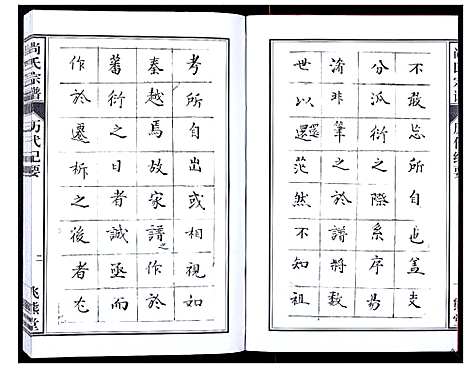 不敢忘所自也盖支
分瓜衍之際系序易
淆非筆之於譜將数
世以還茫然不知祖
考所自出或相視如
秦越焉故家譜之作於
蕃衍之日者誠亟而
作於遷析之後者尤
尚氏宗譜
历代纪要
二
飞熊堂